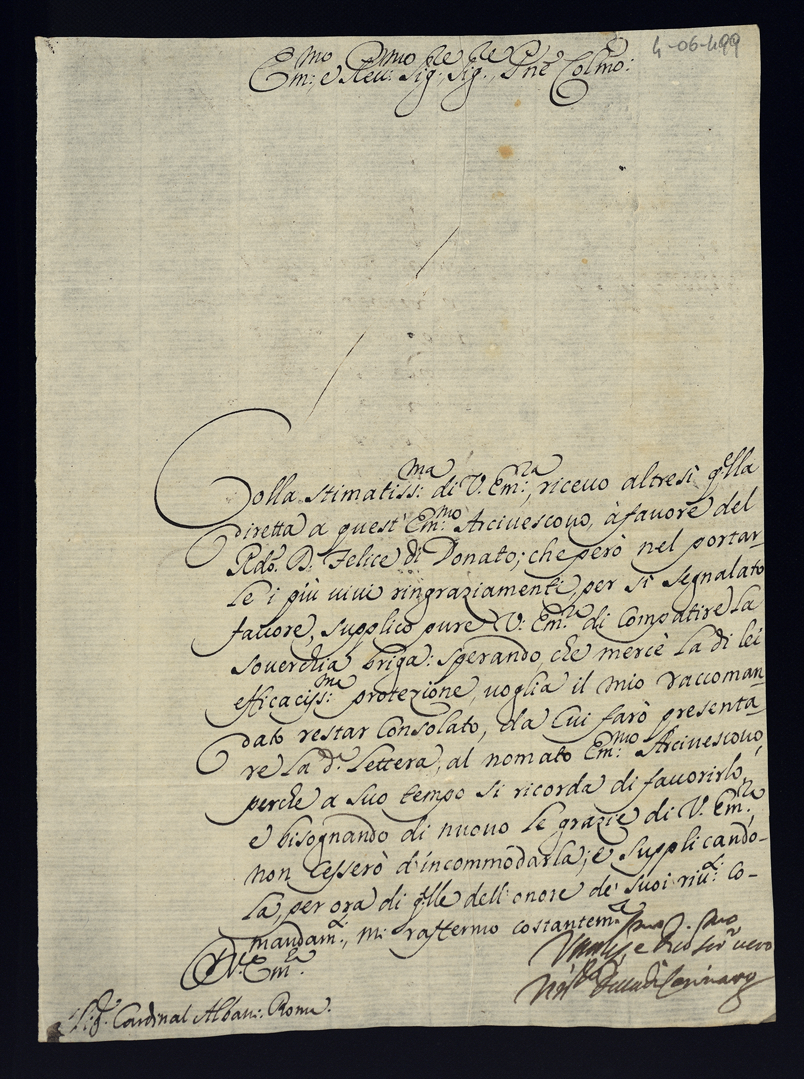 4-06-499
Em:mo e Reu:mo Sig:re Sig:re Pne Colmo:
Colla stimatiss:ma di V. Em:za, riceuo altresì qlla
diretta a quest' Em:mo Arciuescouo, à fauore del
Rdo. D. Felice di Donato; che però nel portar-
le i più viui ringraziamenti, per sì segnalato
fauore, supplico pure V. Em:za di Compatire La
souerchia briga: sperando, che mercè La di lei
efficaciss:ma protezione, voglia il mio raccoman-
dato restar Consolato, da Cui farò presenta-
re La da. Lettera, al nomato Em:mo Arciuescouo,
perche a suo tempo si ricorda di fauorirlo,
e bisognando di nuouo le grazie di V. Em:za,
non Cesserò d'incommodarla; e supplicando-
la, per ora di qlle dell'onore de' suoi riu:ti Co-
mandam:ti, mi raffermo costantem:te
D V. Em:za
Sig. Cardinal Alban: Roma.